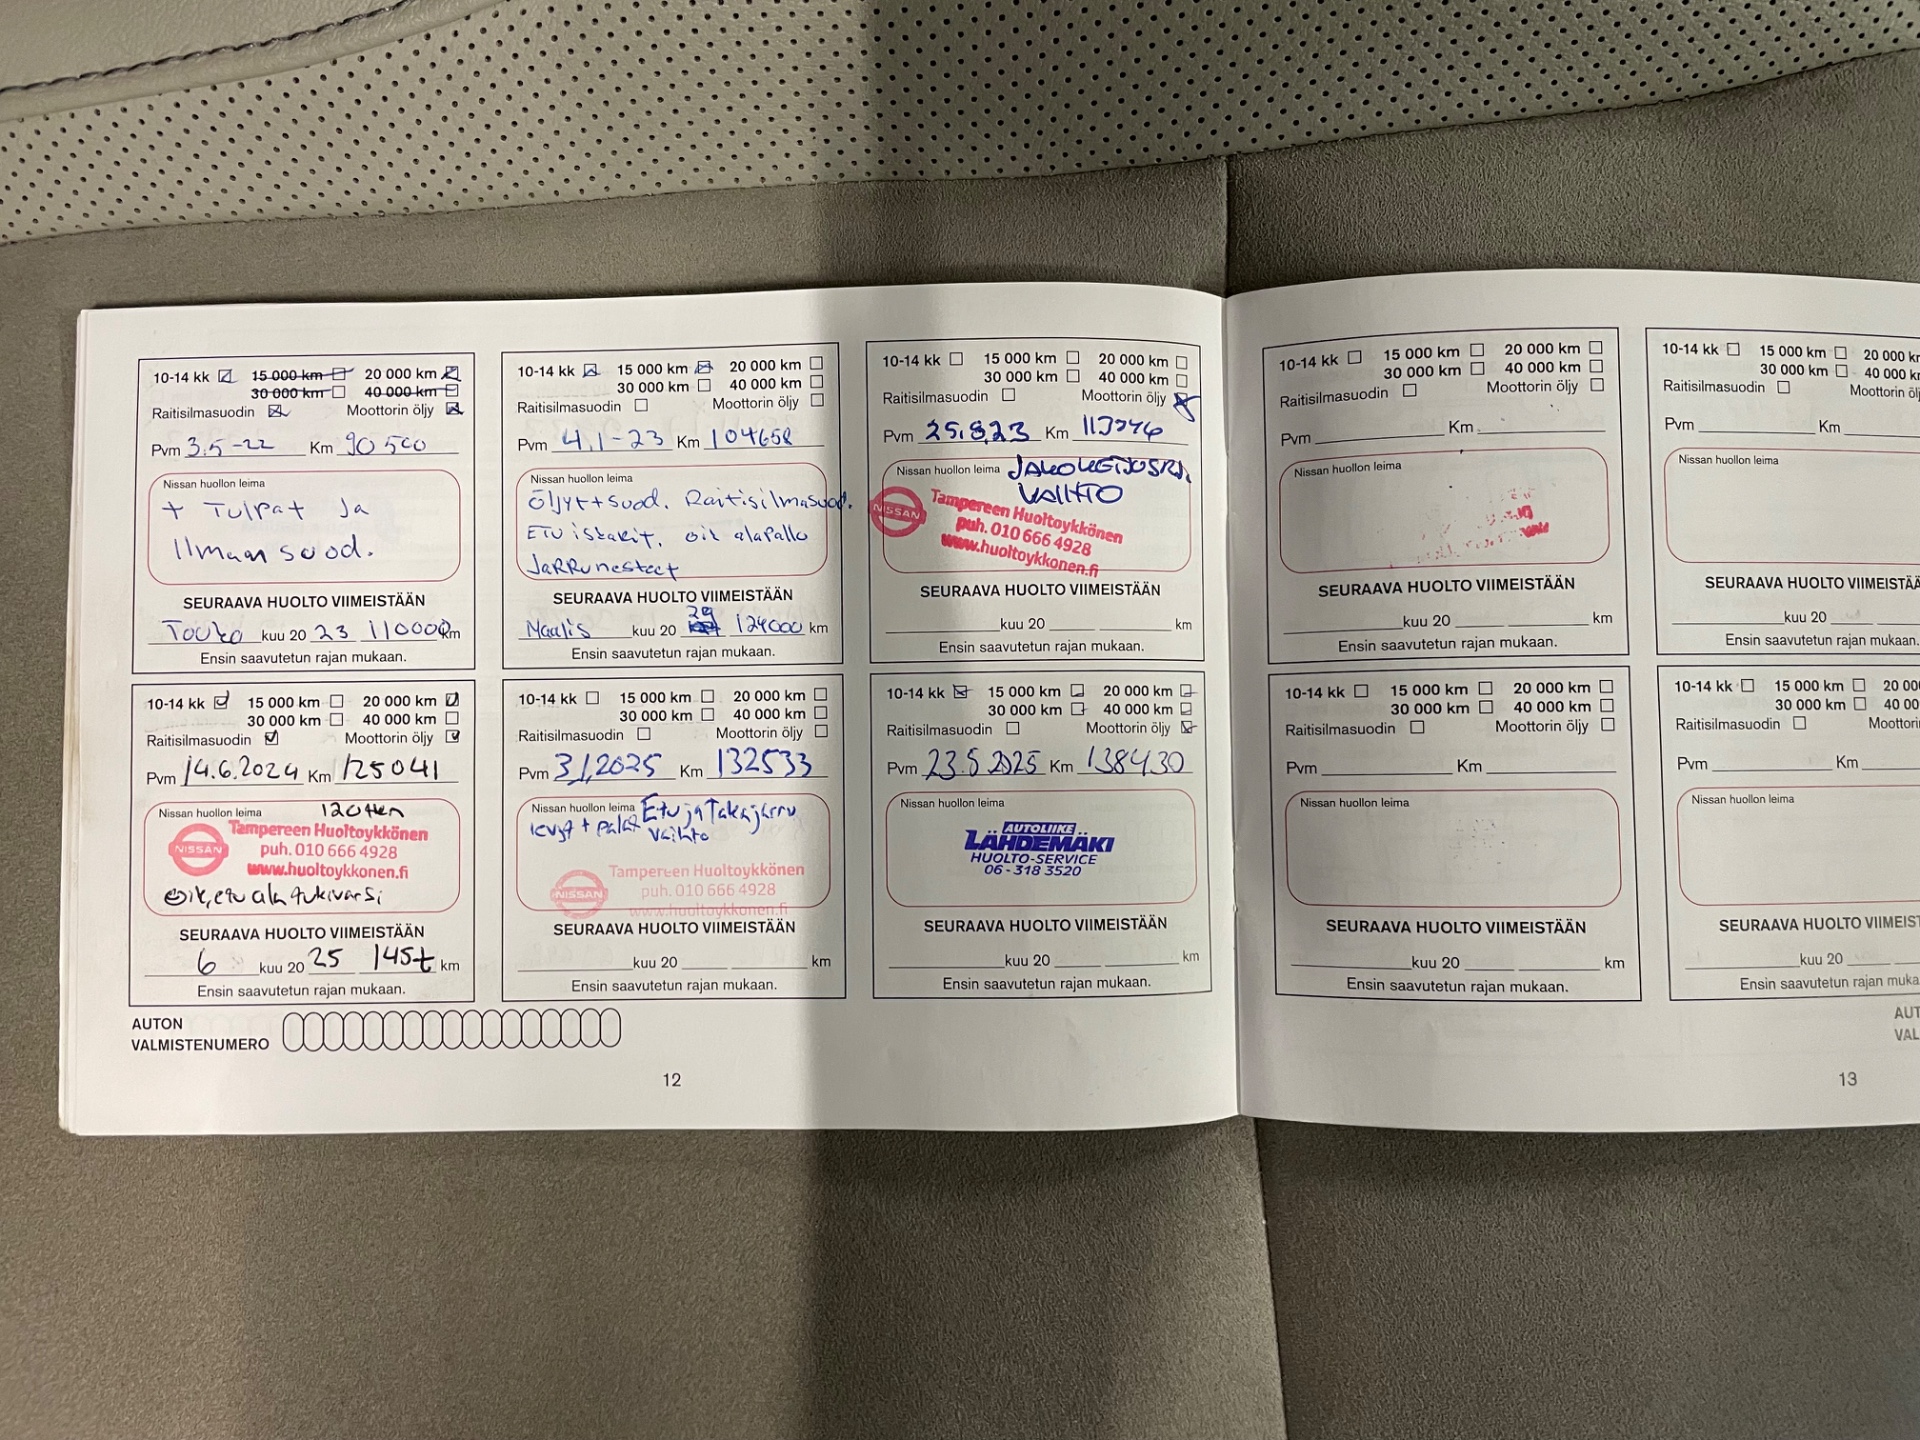 10-14 kk 15 000 km 20 000 km
30 000 km 40 000 km
Raitisilmasuodin Moottorin öljy
Pvm 3.5-22 Km 90 500
Nissan huollon leima
+ Tulpat ja
Ilman suod.
SEURAAVA HUOLTO VIIMEISTÄÄN
Touko kuu 20 23 110000 km
Ensin saavutetun rajan mukaan.
10-14 kk 15 000 km 20 000 km
30 000 km 40 000 km
Raitisilmasuodin Moottorin öljy
Pvm 4.1-23 Km 104658
Nissan huollon leima
Öljyt+suod. Raitisilmasuod.
Etu iskarit, oik alapallo
Jarrunesteet
SEURAAVA HUOLTO VIIMEISTÄÄN
Maalis kuu 20 124000 km
Ensin saavutetun rajan mukaan.
10-14 kk 15 000 km 20 000 km
30 000 km 40 000 km
Raitisilmasuodin Moottorin öljy
Pvm 25.8.23 Km
Nissan huollon leima JAKOKETJUSRJ.
VAIHTO
NISSAN Tampereen Huoltoykkönen
puh. 010 666 4928
www.huoltoykkonen.fi
SEURAAVA HUOLTO VIIMEISTÄÄN
kuu 20 km
Ensin saavutetun rajan mukaan.
10-14 kk 15 000 km 20 000 km
30 000 km 40 000 km
Raitisilmasuodin Moottorin öljy
Pvm 14.6.2024 Km 125041
Nissan huollon leima 120tkm
NISSAN Tampereen Huoltoykkönen
puh. 010 666 4928
www.huoltoykkonen.fi
Oik, etu ala tukivarsi
SEURAAVA HUOLTO VIIMEISTÄÄN
6 kuu 20 25 145t km
Ensin saavutetun rajan mukaan.
10-14 kk 15 000 km 20 000 km
30 000 km 40 000 km
Raitisilmasuodin Moottorin öljy
Pvm 3.1.2025 Km 132533
Nissan huollon leima Etu ja Takajarru
levyt + palat vaihto
NISSAN Tampereen Huoltoykkönen
puh. 010 666 4928
www.huoltoykkonen.fi
SEURAAVA HUOLTO VIIMEISTÄÄN
kuu 20 km
Ensin saavutetun rajan mukaan.
10-14 kk 15 000 km 20 000 km
30 000 km 40 000 km
Raitisilmasuodin Moottorin öljy
Pvm 23.5 2025 Km 138430
Nissan huollon leima
AUTOLIIKE
LÄHDEMÄKI
HUOLTO-SERVICE
06-318 3520
SEURAAVA HUOLTO VIIMEISTÄÄN
kuu 20 km
Ensin saavutetun rajan mukaan.
AUTON
VALMISTENUMERO
12
10-14 kk 15 000 km 20 000 km
30 000 km 40 000 km
Raitisilmasuodin Moottorin öljy
Pvm Km
Nissan huollon leima
SEURAAVA HUOLTO VIIMEISTÄÄN
kuu 20 km
Ensin saavutetun rajan mukaan.
10-14 kk 15 000 km 20 000 km
30 000 km 40 00
Raitisilmasuodin Moottorin öl
Pvm Km
Nissan huollon leima
SEURAAVA HUOLTO VIIMEISTÄÄ
kuu 20
Ensin saavutetun rajan mukaan.
10-14 kk 15 000 km 20 000 km
30 000 km 40 000 km
Raitisilmasuodin Moottorin öljy
Pvm Km
Nissan huollon leima
SEURAAVA HUOLTO VIIMEISTÄÄN
kuu 20 km
Ensin saavutetun rajan mukaan.
10-14 kk 15 000 km 20 00
30 000 km 40 00
Raitisilmasuodin Moottori
Pvm Km
Nissan huollon leima
SEURAAVA HUOLTO VIIMEIST
kuu 20
Ensin saavutetun rajan muka
AUT
VAL
13